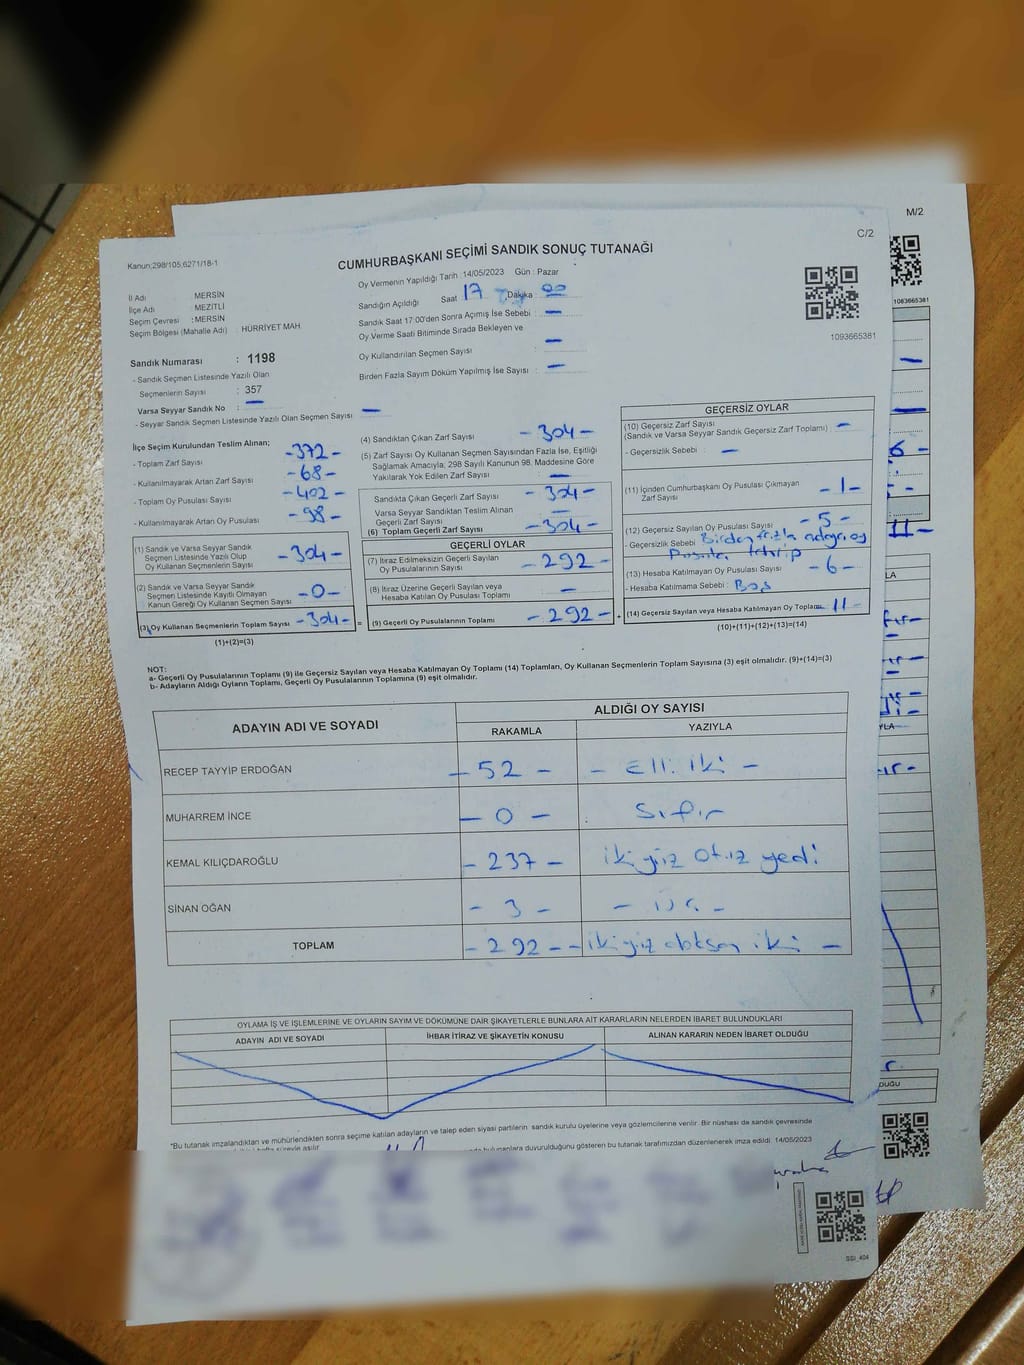 M/2
C/2
Kanun:298/105,6271/18-1
CUMHURBAŞKANI SEÇİMİ SANDIK SONUÇ TUTANAĞI
İl Adı : MERSİN
İlçe Adı : MEZİTLİ
Seçim Çevresi : MERSİN
Seçim Bölgesi (Mahalle Adı) : HÜRRİYET MAH.
Sandık Numarası : 1198
- Sandık Seçmen Listesinde Yazılı Olan
Seçmenlerin Sayısı : 357
Varsa Seyyar Sandık No : —
- Seyyar Sandık Seçmen Listesinde Yazılı Olan Seçmen Sayısı —
Oy Vermenin Yapıldığı Tarih : 14/05/2023 Gün : Pazar
Sandığın Açıldığı Saat 17 Dakika 00
Sandık Saat 17:00'den Sonra Açımış İse Sebebi : —
Oy Verme Saati Bitiminde Sırada Bekleyen ve
Oy Kullandırılan Seçmen Sayısı : —
Birden Fazla Sayım Döküm Yapılmış İse Sayısı : —
1093665381
1083665381
İlçe Seçim Kurulundan Teslim Alınan;
- Toplam Zarf Sayısı -372-
- Kullanılmayarak Artan Zarf Sayısı -68-
- Toplam Oy Pusulası Sayısı -402-
- Kullanılmayarak Artan Oy Pusulası -98-
(1) Sandık ve Varsa Seyyar Sandık
Seçmen Listesinde Yazılı Olup
Oy Kullanan Seçmenlerin Sayısı -304-
(2) Sandık ve Varsa Seyyar Sandık
Seçmen Listesinde Kayıtlı Olmayan
Kanun Gereği Oy Kullanan Seçmen Sayısı -0-
(3) Oy Kullanan Seçmenlerin Toplam Sayısı -304-
(1)+(2)=(3)
(4) Sandıktan Çıkan Zarf Sayısı -304-
(5) Zarf Sayısı Oy Kullanan Seçmen Sayısından Fazla İse, Eşitliği
Sağlamak Amacıyla, 298 Sayılı Kanunun 98. Maddesine Göre
Yakılarak Yok Edilen Zarf Sayısı —
Sandıkta Çıkan Geçerli Zarf Sayısı -304-
Varsa Seyyar Sandıktan Teslim Alınan
Geçerli Zarf Sayısı —
(6) Toplam Geçerli Zarf Sayısı -304-
GEÇERLİ OYLAR
(7) İtiraz Edilmeksizin Geçerli Sayılan
Oy Pusulalarının Sayısı -292-
(8) İtiraz Üzerine Geçerli Sayılan veya
Hesaba Katılan Oy Pusulası Toplamı —
= (9) Geçerli Oy Pusulalarının Toplamı -292- +
GEÇERSİZ OYLAR
(10) Geçersiz Zarf Sayısı
(Sandık ve Varsa Seyyar Sandık Geçersiz Zarf Toplamı) : —
- Geçersizlik Sebebi : —
(11) İçinden Cumhurbaşkanı Oy Pusulası Çıkmayan
Zarf Sayısı -1-
(12) Geçersiz Sayılan Oy Pusulası Sayısı -5-
- Geçersizlik Sebebi Birden fazla adaya oy
Pusula tahrip
(13) Hesaba Katılmayan Oy Pusulası Sayısı -6-
- Hesaba Katılmama Sebebi : Boş
(14) Geçersiz Sayılan veya Hesaba Katılmayan Oy Toplamı 11-
(10)+(11)+(12)+(13)=(14)
NOT:
a- Geçerli Oy Pusulalarının Toplamı (9) ile Geçersiz Sayılan veya Hesaba Katılmayan Oy Toplamı (14) Toplamları, Oy Kullanan Seçmenlerin Toplam Sayısına (3) eşit olmalıdır. (9)+(14)=(3)
b- Adayların Aldığı Oyların Toplamı, Geçerli Oy Pusulalarının Toplamına (9) eşit olmalıdır.
ADAYIN ADI VE SOYADI
ALDIĞI OY SAYISI
RAKAMLA YAZIYLA
RECEP TAYYİP ERDOĞAN -52- -Elli iki-
MUHARREM İNCE -0- Sıfır
KEMAL KILIÇDAROĞLU -237- iki yüz otuz yedi
SİNAN OĞAN -3- -üç-
TOPLAM -292- -iki yüz doksan iki-
OYLAMA İŞ VE İŞLEMLERİNE VE OYLARIN SAYIM VE DÖKÜMÜNE DAİR ŞİKAYETLERLE BUNLARA AİT KARARLARIN NELERDEN İBARET BULUNDUKLARI
ADAYIN ADI VE SOYADI İHBAR İTİRAZ VE ŞİKAYETİN KONUSU ALINAN KARARIN NEDEN İBARET OLDUĞU
*Bu tutanak imzalandıktan ve mühürlendikten sonra seçime katılan adayların ve talep eden siyasi partilerin sandık kurulu üyelerine veya gözlemcilerine verilir. Bir nüshası da sandık çevresinde
duyurulduğunu gösteren bu tutanak tarafımızdan düzenlenerek imza edildi. 14/05/2023
SSİ_404